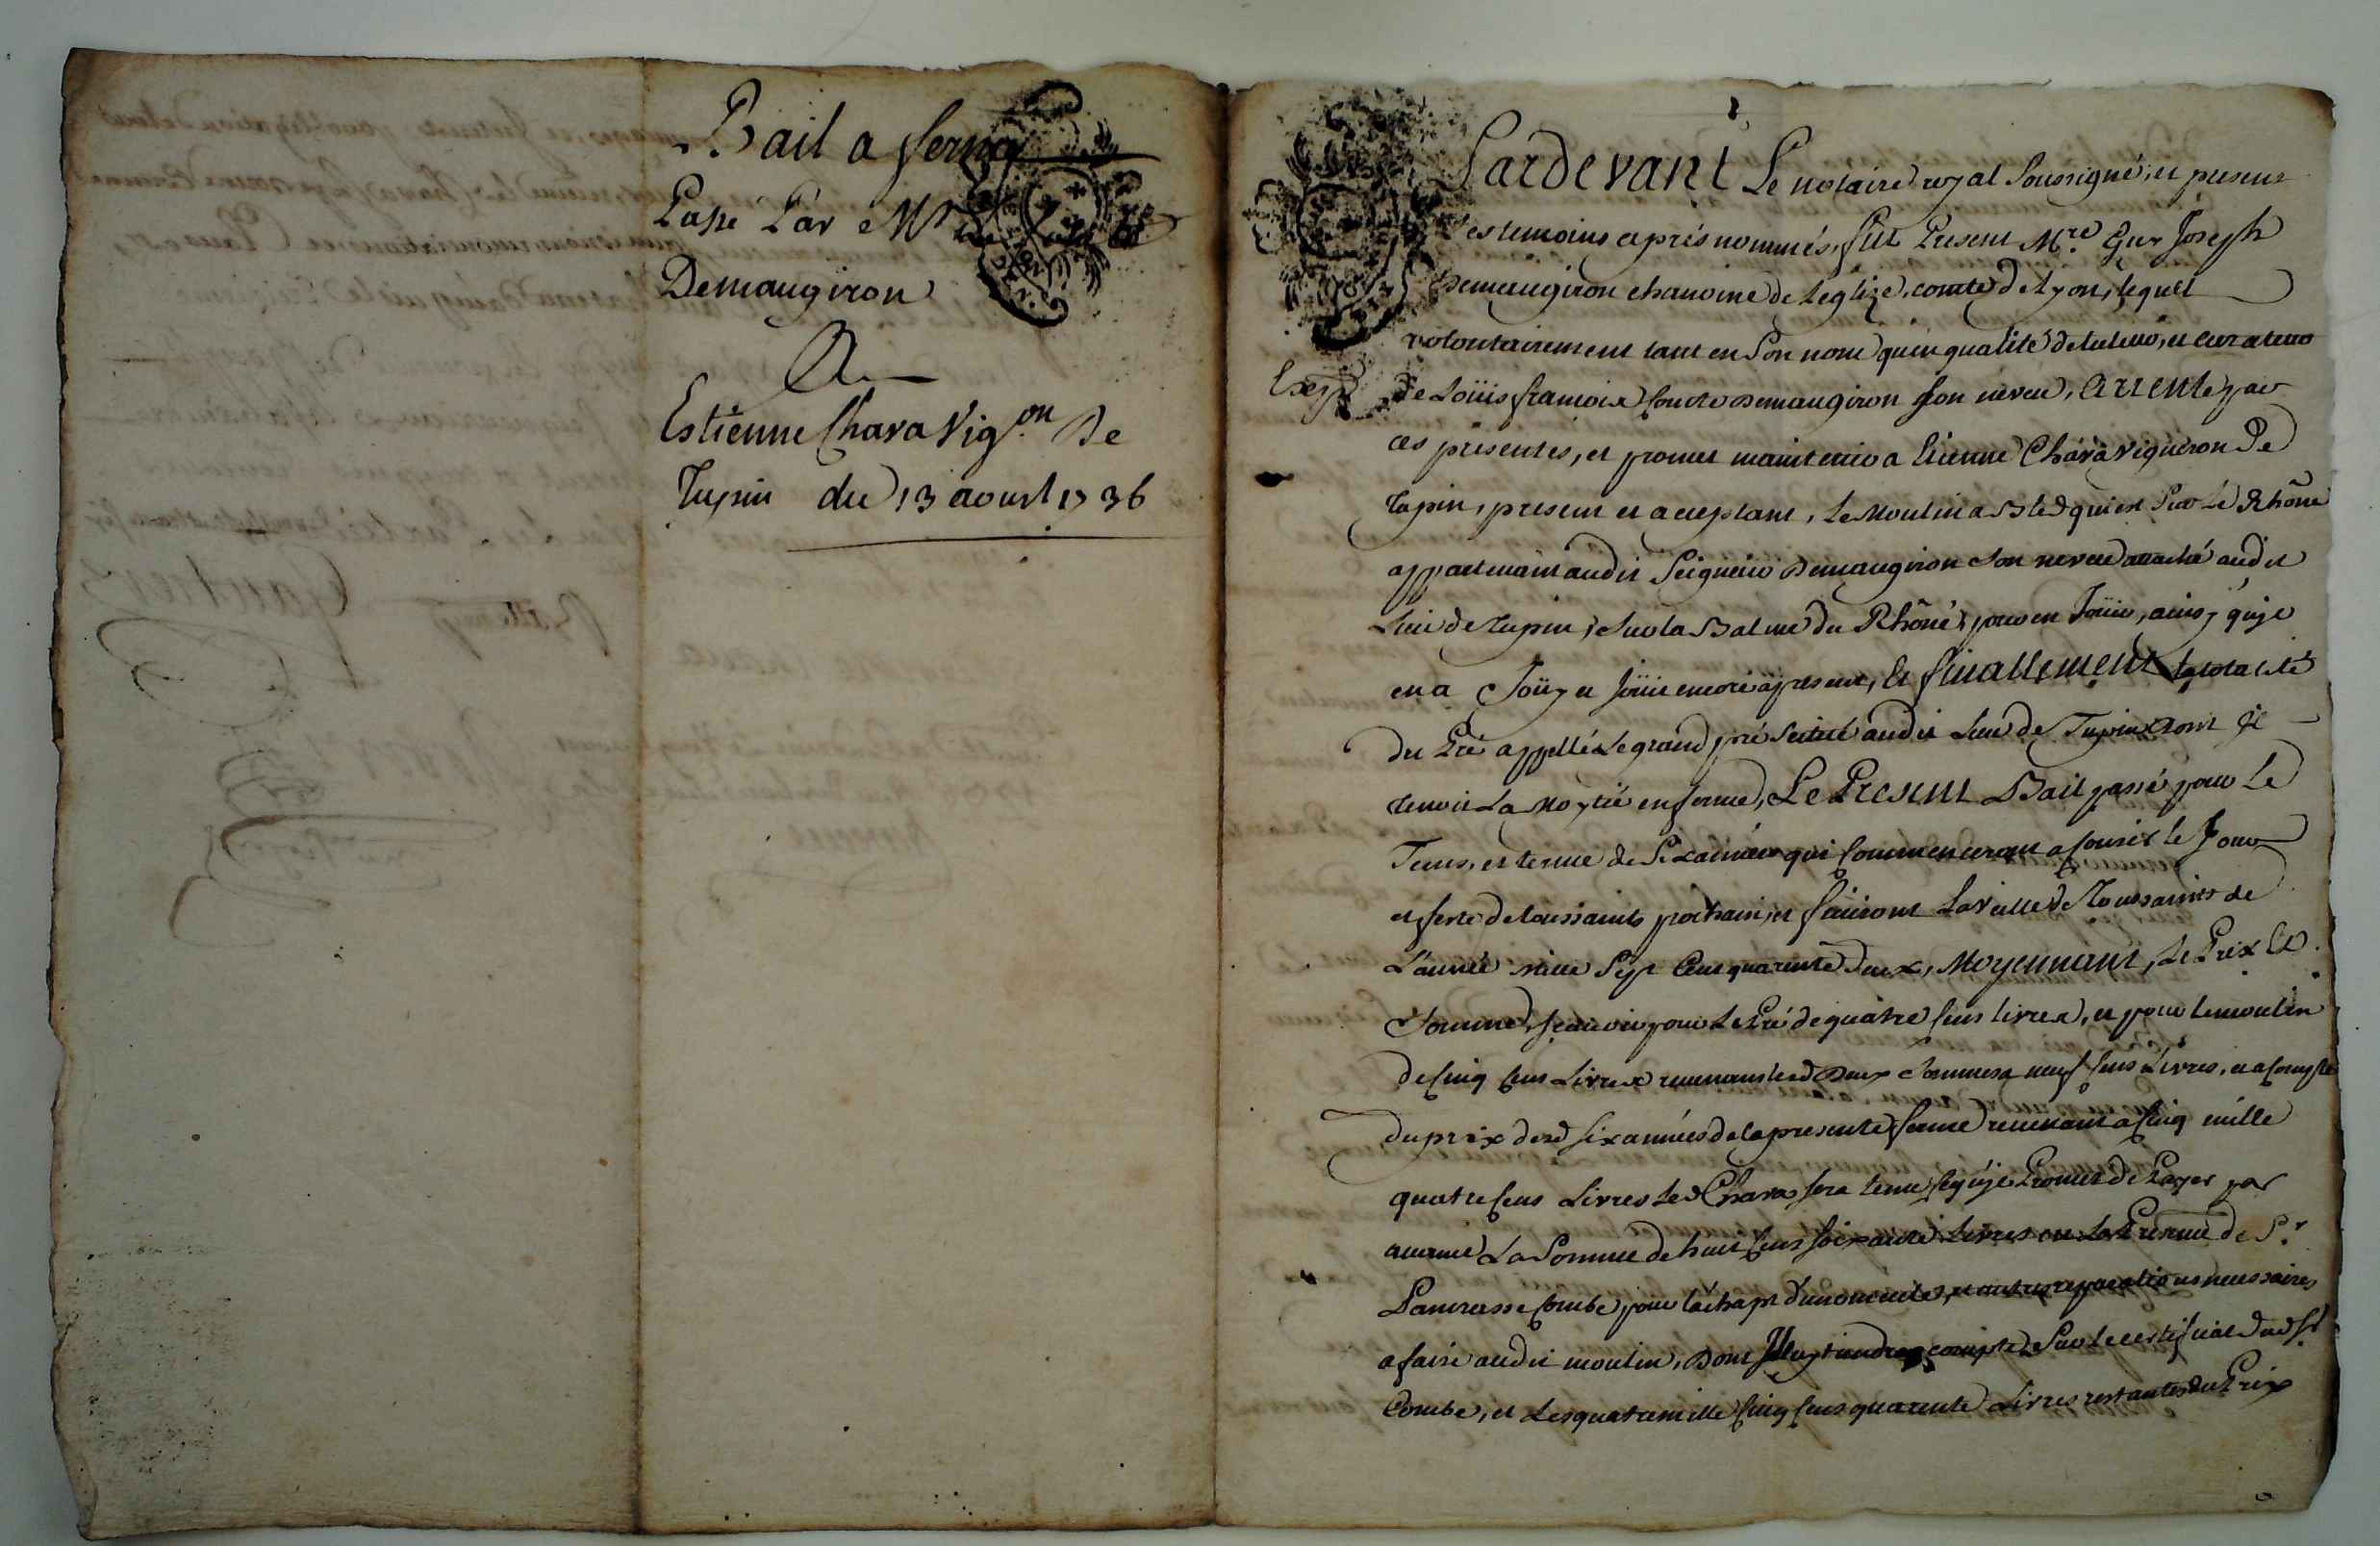 Bail a ferme
Passé Par Mr
Demaugiron
A
Estienne Chara Vig.on De
Tupin du 13 aoust 1736
Pardevant Le notaire royal soussigné, et presens
Les temoins apres nommés, fut Present M.re Guy Joseph
Demaugiron chanoine de Leglize, comte de Lyon, lequel
volontairement tant en Son nom qu'en qualité de tuteur, et curateur
Exp.
de Loüis francois Comte Demaugiron son neveu, Arente par
ces presentes, et promet maintenir a Etienne Chara vigneron De
Tupin, present et acceptant, Le Moulin a Bled qui est Sur Le Rhône
appartenant audit Seigneur Demaugiron Son neveu attaché audit
Lieu de Tupin, Sur la Balme du Rhône, pour en Joüir, ainsy qu'il
en a Joüy et Joüit encore a present, Et finallement la totalité
du Pré appellé Le grand pré scitué audit Lieu de Tupin dont il
tenoit La Moytié en ferme, Le Present Bail passé pour Le
Tems, et terme de Six années qui Commenceront a Courir le Jour
et feste de toussaints prochain, et finiront La veille de Toussaints de
L'année mille Sept Cent quarante Deux, Moyennant, Le Prix Et
Somme, scavoir pour Le Pré de quatre Cens livres, et pour le moulin
de Cinq Cens Livres revenant lesd Deux Sommes a neuf Cens Livres, et a Compte
du prix desd six années de la presente ferme revenant a Cinq mille
quatre Cens Livres Led Chara sera tenu Comme il Promet de Payer par
avance La Somme de huit Cens soixante Livres en La Presence de S.r
Combe pour l'achapt d'une meule, et autres reparations necessaires
a faire audit moulin, Dont Il luy tiendra compte Sur le certificat dud Sr
Combe, et Les quatre mille Cinq Cens quarante Livres restantes du Prix